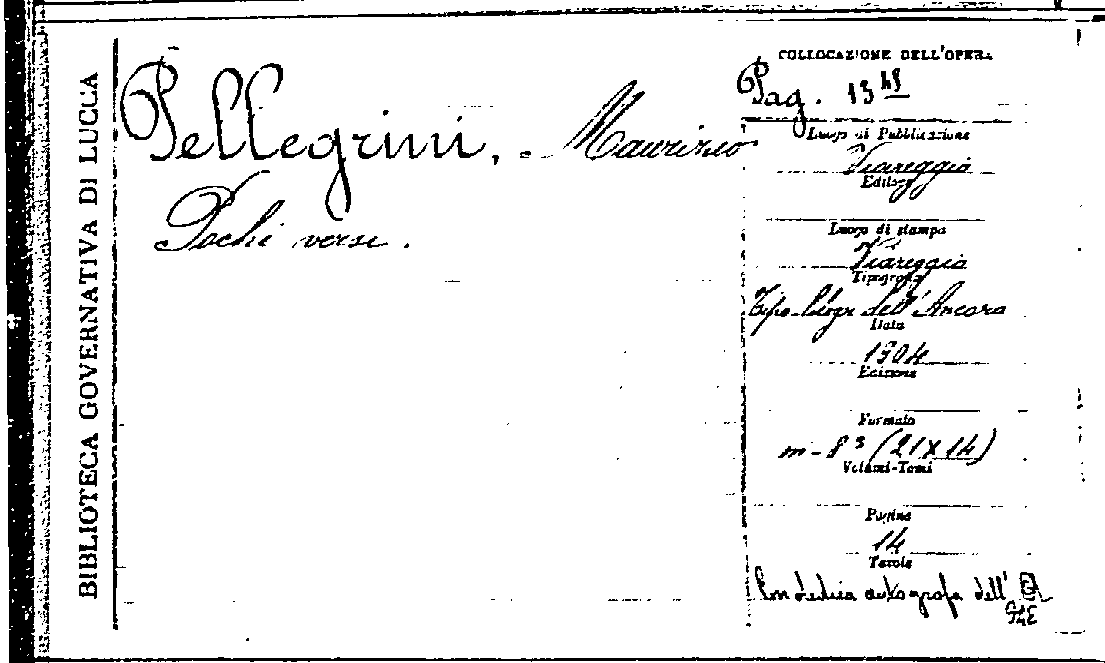 BIBLIOTECA GOVERNATIVA DI LUCCA
Pellegrini, - Maurizio
Pochi versi.
COLLOCAZIONE DELL'OPERA
Pag. 13
Luogo di Pubblicazione
Viareggio
Editore
Luogo di stampa
Viareggio
Tipografo
dell'Ancora
Data
1904
Edizione
Formato
in-8° (21x14)
Volumi-Tomi
Pagine
14
Tavole
Con dedica autografa dell'